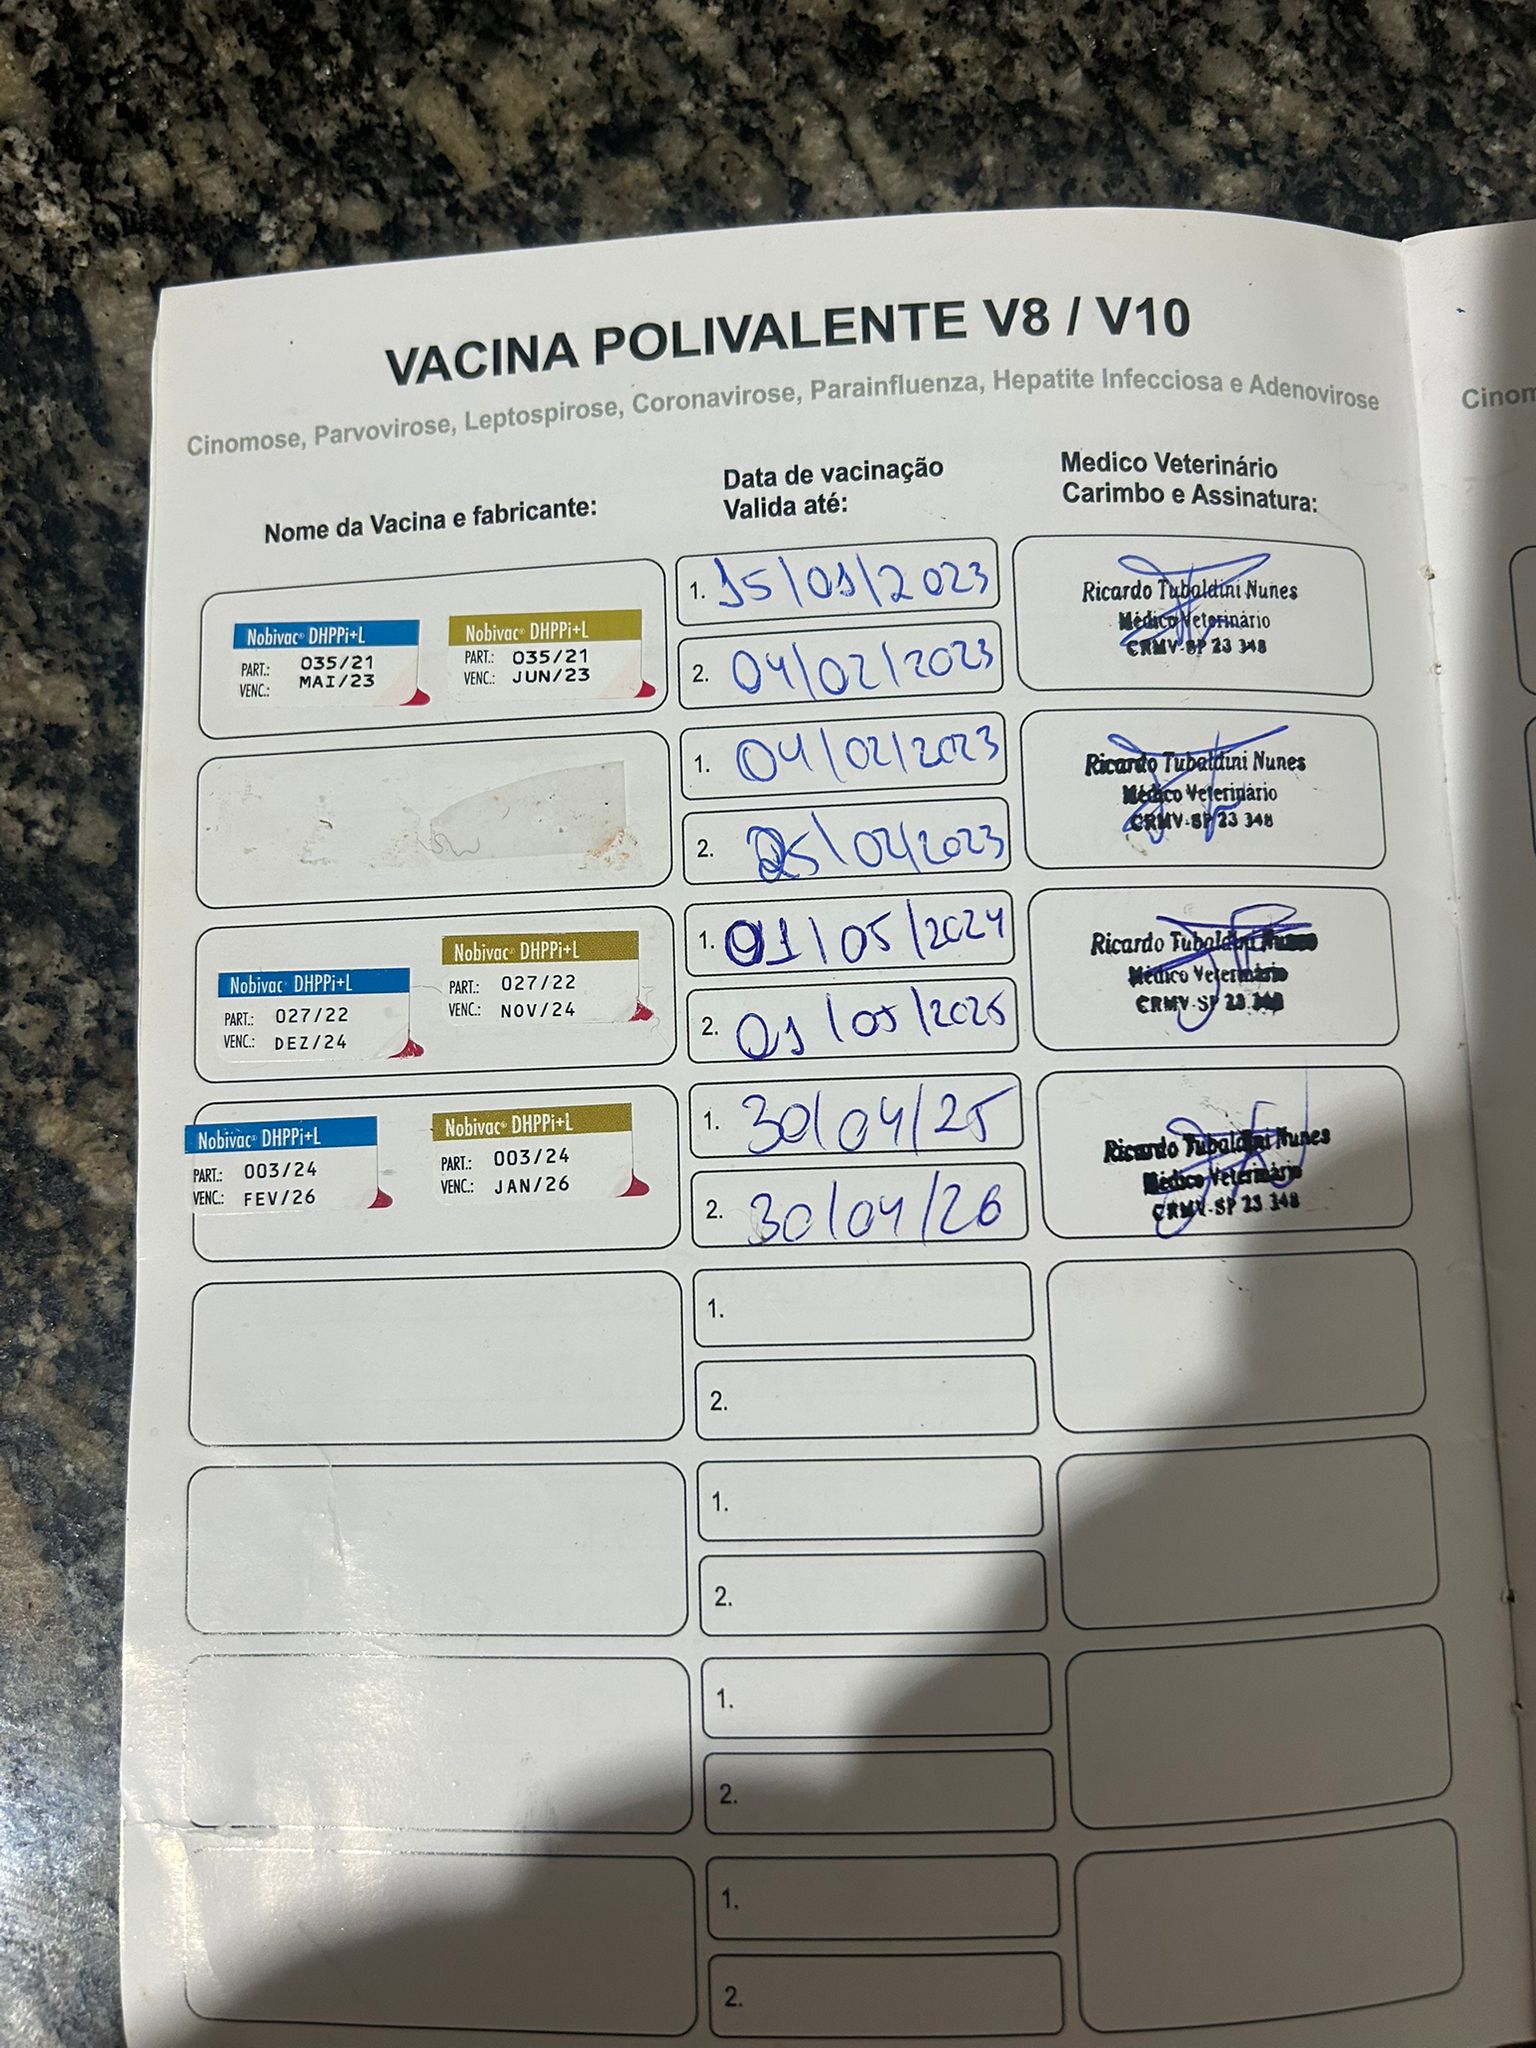 VACINA POLIVALENTE V8 / V10
Cinomose, Parvovirose, Leptospirose, Coronavirose, Parainfluenza, Hepatite Infecciosa e Adenovirose
Cinom
Nome da Vacina e fabricante:
Data de vacinação
Valida até:
Medico Veterinário
Carimbo e Assinatura:
Nobivac® DHPPi+L
PART.: 035/21
VENC.: MAI/23
Nobivac® DHPPi+L
PART.: 035/21
VENC.: JUN/23
1. 15/01/2023
2. 04/02/2023
Ricardo Tubaldini Nunes
Médico Veterinário
CRMV-SP 23 348
1. 04/02/2023
2. 25/02/2023
Ricardo Tubaldini Nunes
Médico Veterinário
CRMV-SP 23 348
Nobivac® DHPPi+L
PART.: 027/22
VENC.: DEZ/24
Nobivac® DHPPi+L
PART.: 027/22
VENC.: NOV/24
1. 01/05/2024
2. 01/05/2025
Ricardo Tubaldini Nunes
Médico Veterinário
CRMV-SP 23 348
Nobivac® DHPPi+L
PART.: 003/24
VENC.: FEV/26
Nobivac® DHPPi+L
PART.: 003/24
VENC.: JAN/26
1. 30/04/25
2. 30/04/26
Ricardo Tubaldini Nunes
Médico Veterinário
CRMV-SP 23 348
1.
2.
1.
2.
1.
2.
1.
2.